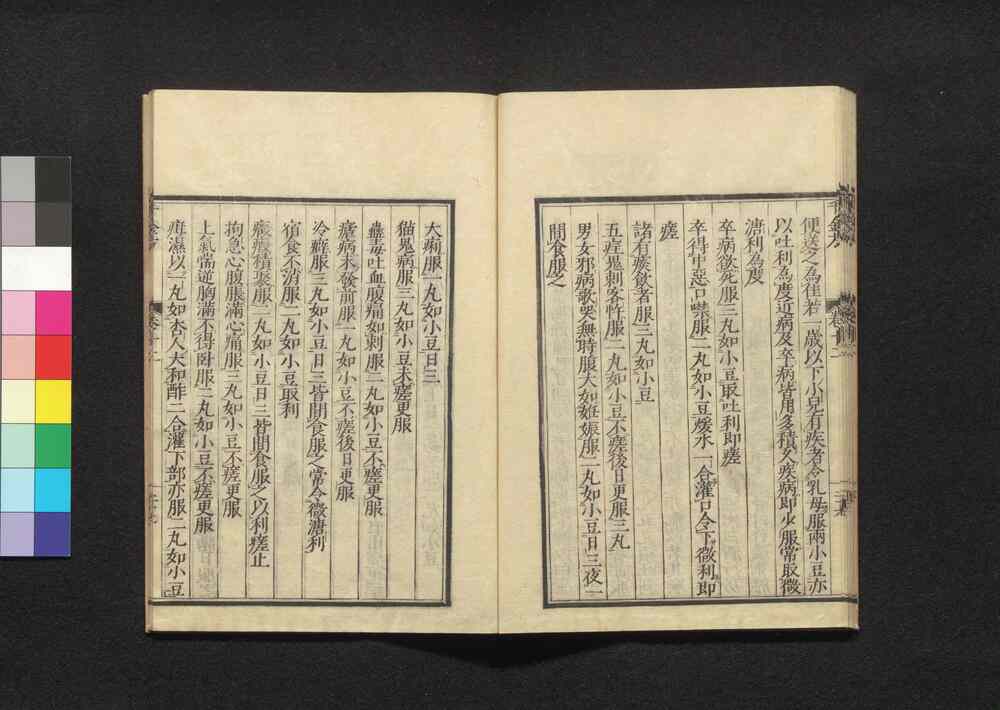 便送之為佳若一歲以下小兒有疾者令乳母服兩小豆亦
以吐利為度近病及卒病皆用多積久疾病即少服常取微
溏利為度
卒病欲死服三丸如小豆取吐利即瘥
卒得中惡口噤服二丸如小豆煖水一合灌口令下微利即
瘥
諸有痰飲者服三丸如小豆
五疰鬼刺客忤服二丸如小豆不瘥後日更服三丸
男女邪病歌哭無時腹大如妊娠服二丸如小豆日三夜一
間食服之
大痢服一丸如小豆日三
猫鬼病服三丸如小豆未瘥更服
蠱毒吐血腹痛如刺服二丸如小豆不瘥更服
瘧病未發前服一丸如小豆不瘥後日更服
冷癖服三丸如小豆日三皆間食服之常令微溏利
宿食不消服二丸如小豆取利
癥瘕積聚服二丸如小豆日三皆間食服之以利瘥止
拘急心腹脹滿心痛服三丸如小豆不瘥更服
上氣喘逆胸滿不得卧服二丸如小豆不瘥更服
疳濕以一丸如杏人大和酢二合灌下部亦服二丸如小豆